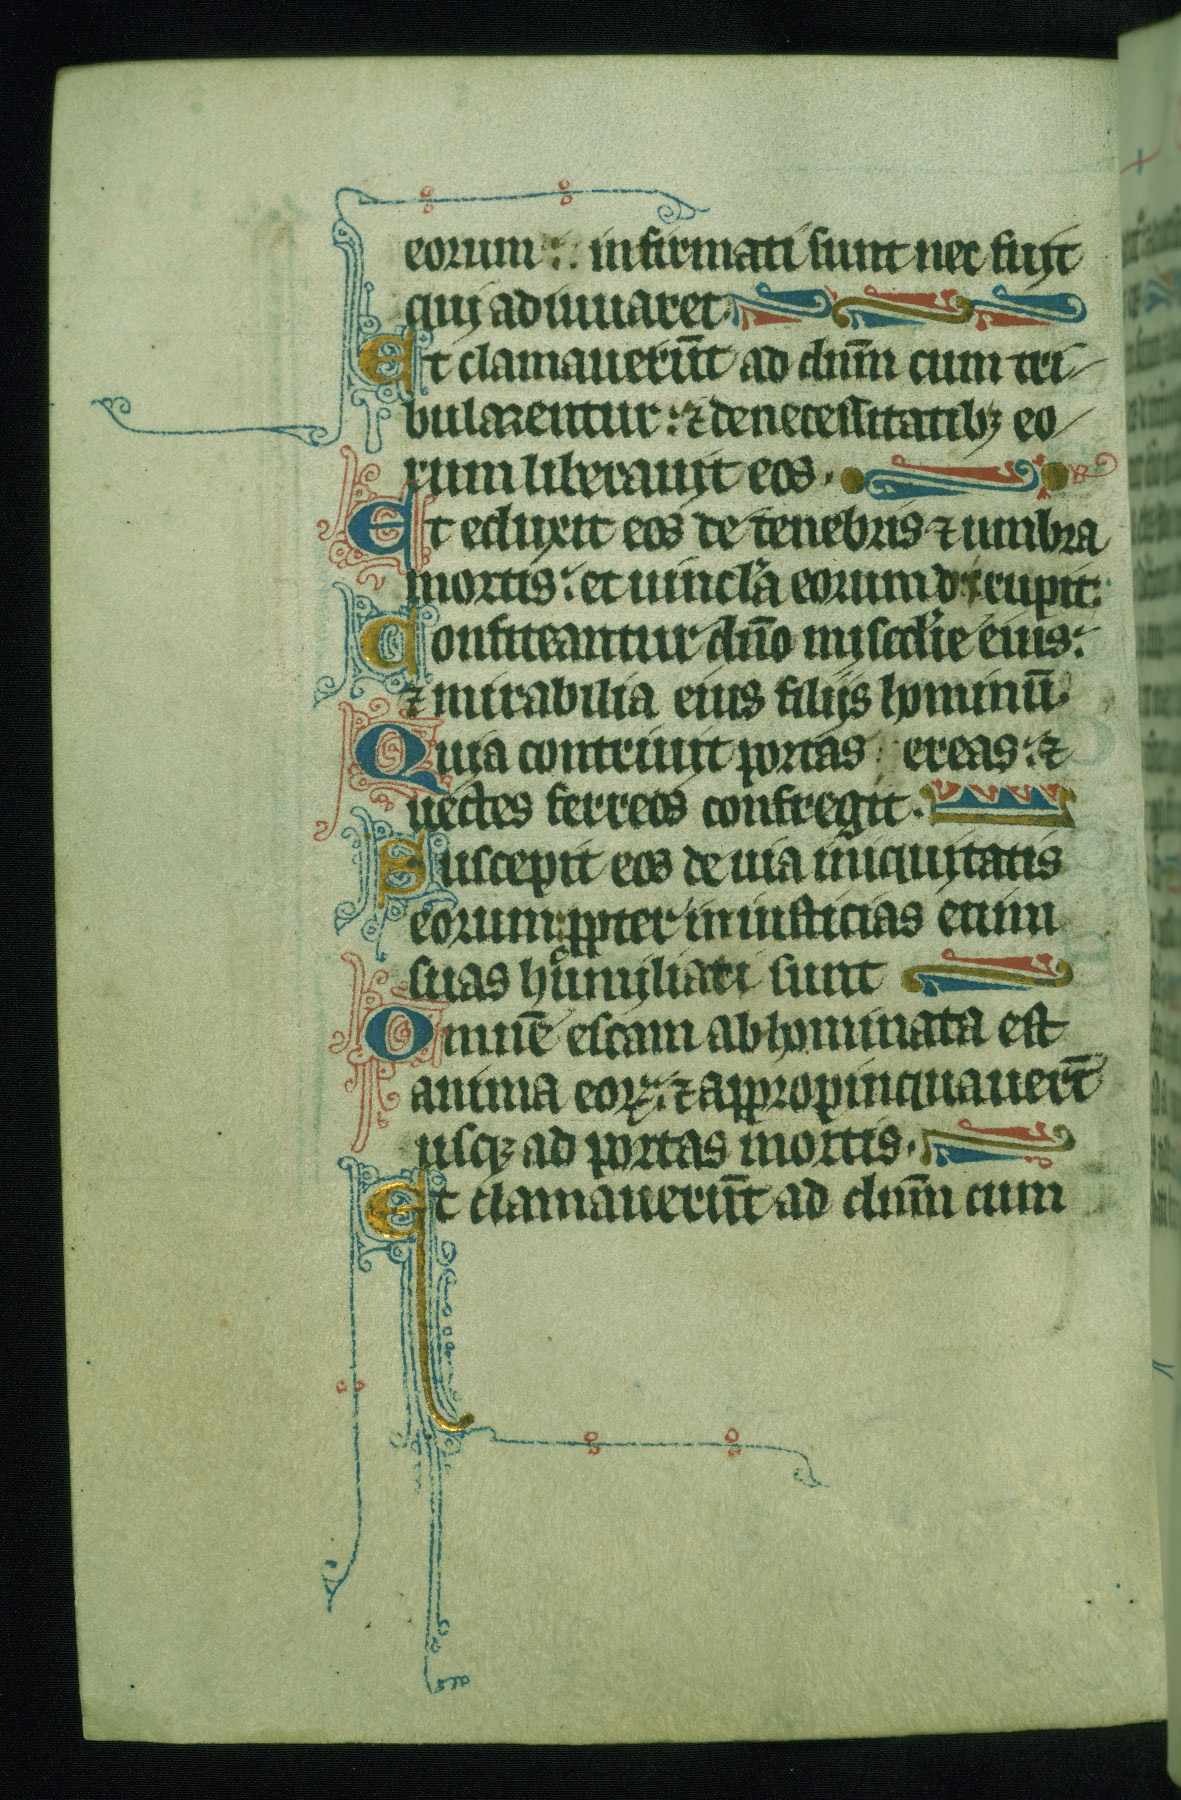 eorum : infirmati sunt nec fuit
qui adiuuaret
Et clamauerūt ad dūm cum tri
bularentur : ⁊ de necessitatibꝫ eo
rum liberauit eos.
Et eduxit eos de tenebris ⁊ umbra
mortis : et uincla eorum dirupit
Confiteantur dn̄o miscd'ie eius :
⁊ mirabilia eius filijs hominū
Quia contriuit portas ereas : ⁊
uectes ferreos confregit.
Suscepit eos de uia iniquitatis
eorum : ꝓpter iniusticias enim
suas humiliati sunt
Omnē escam abhominata est
anima eoꝝ : ⁊ appropinquauer̄t
usqꝫ ad portas mortis.
Et clamauerūt ad dūm cum